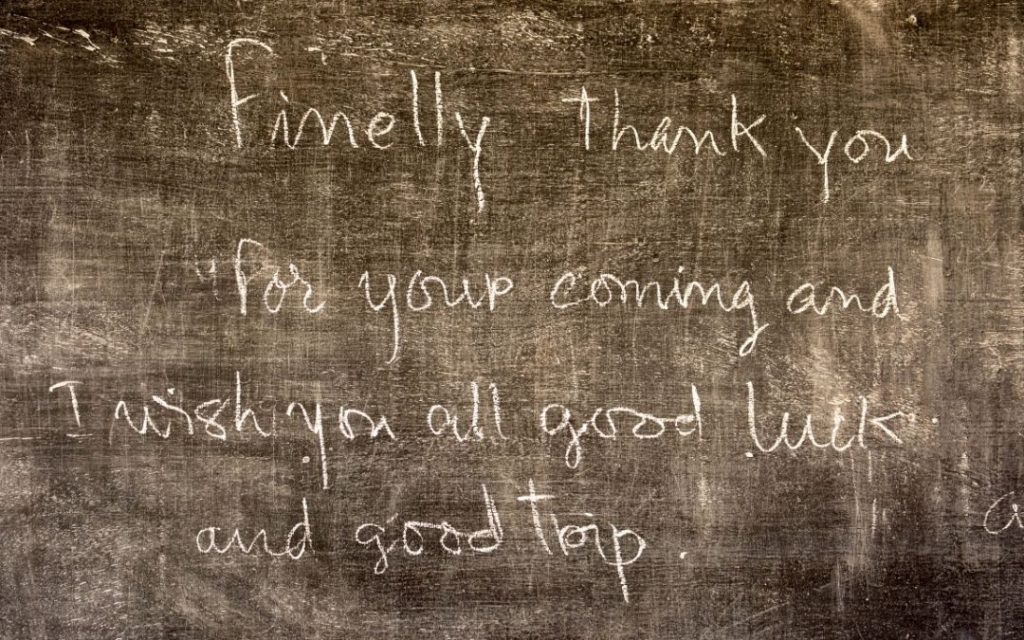 Finelly thank you
for your coming and
I wish you all good luck
and good trip.